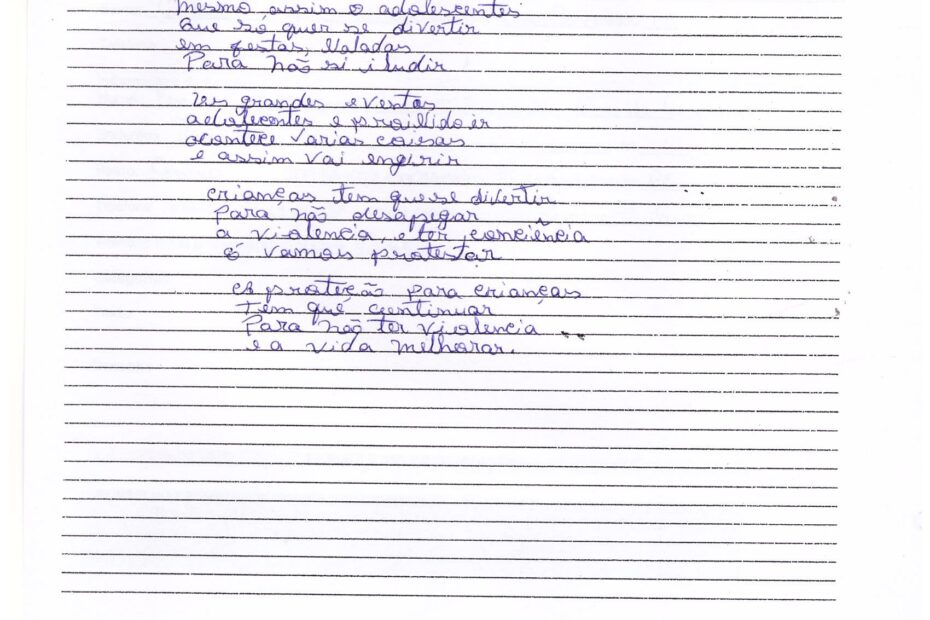 mesmo assim o adolescentes
Que só quer se divertir
em festas, Baladas
Para não si iludir
grandes eventos
adolecentes e proibido ir
acontece varias coisas
e assim vai
crianças tem que se divertir
Para não desapegar
a violencia, e ter conciência
é vamos protestar
A proteção para crianças
Tem que continuar
Para não ter violencia
e a vida melhorar.